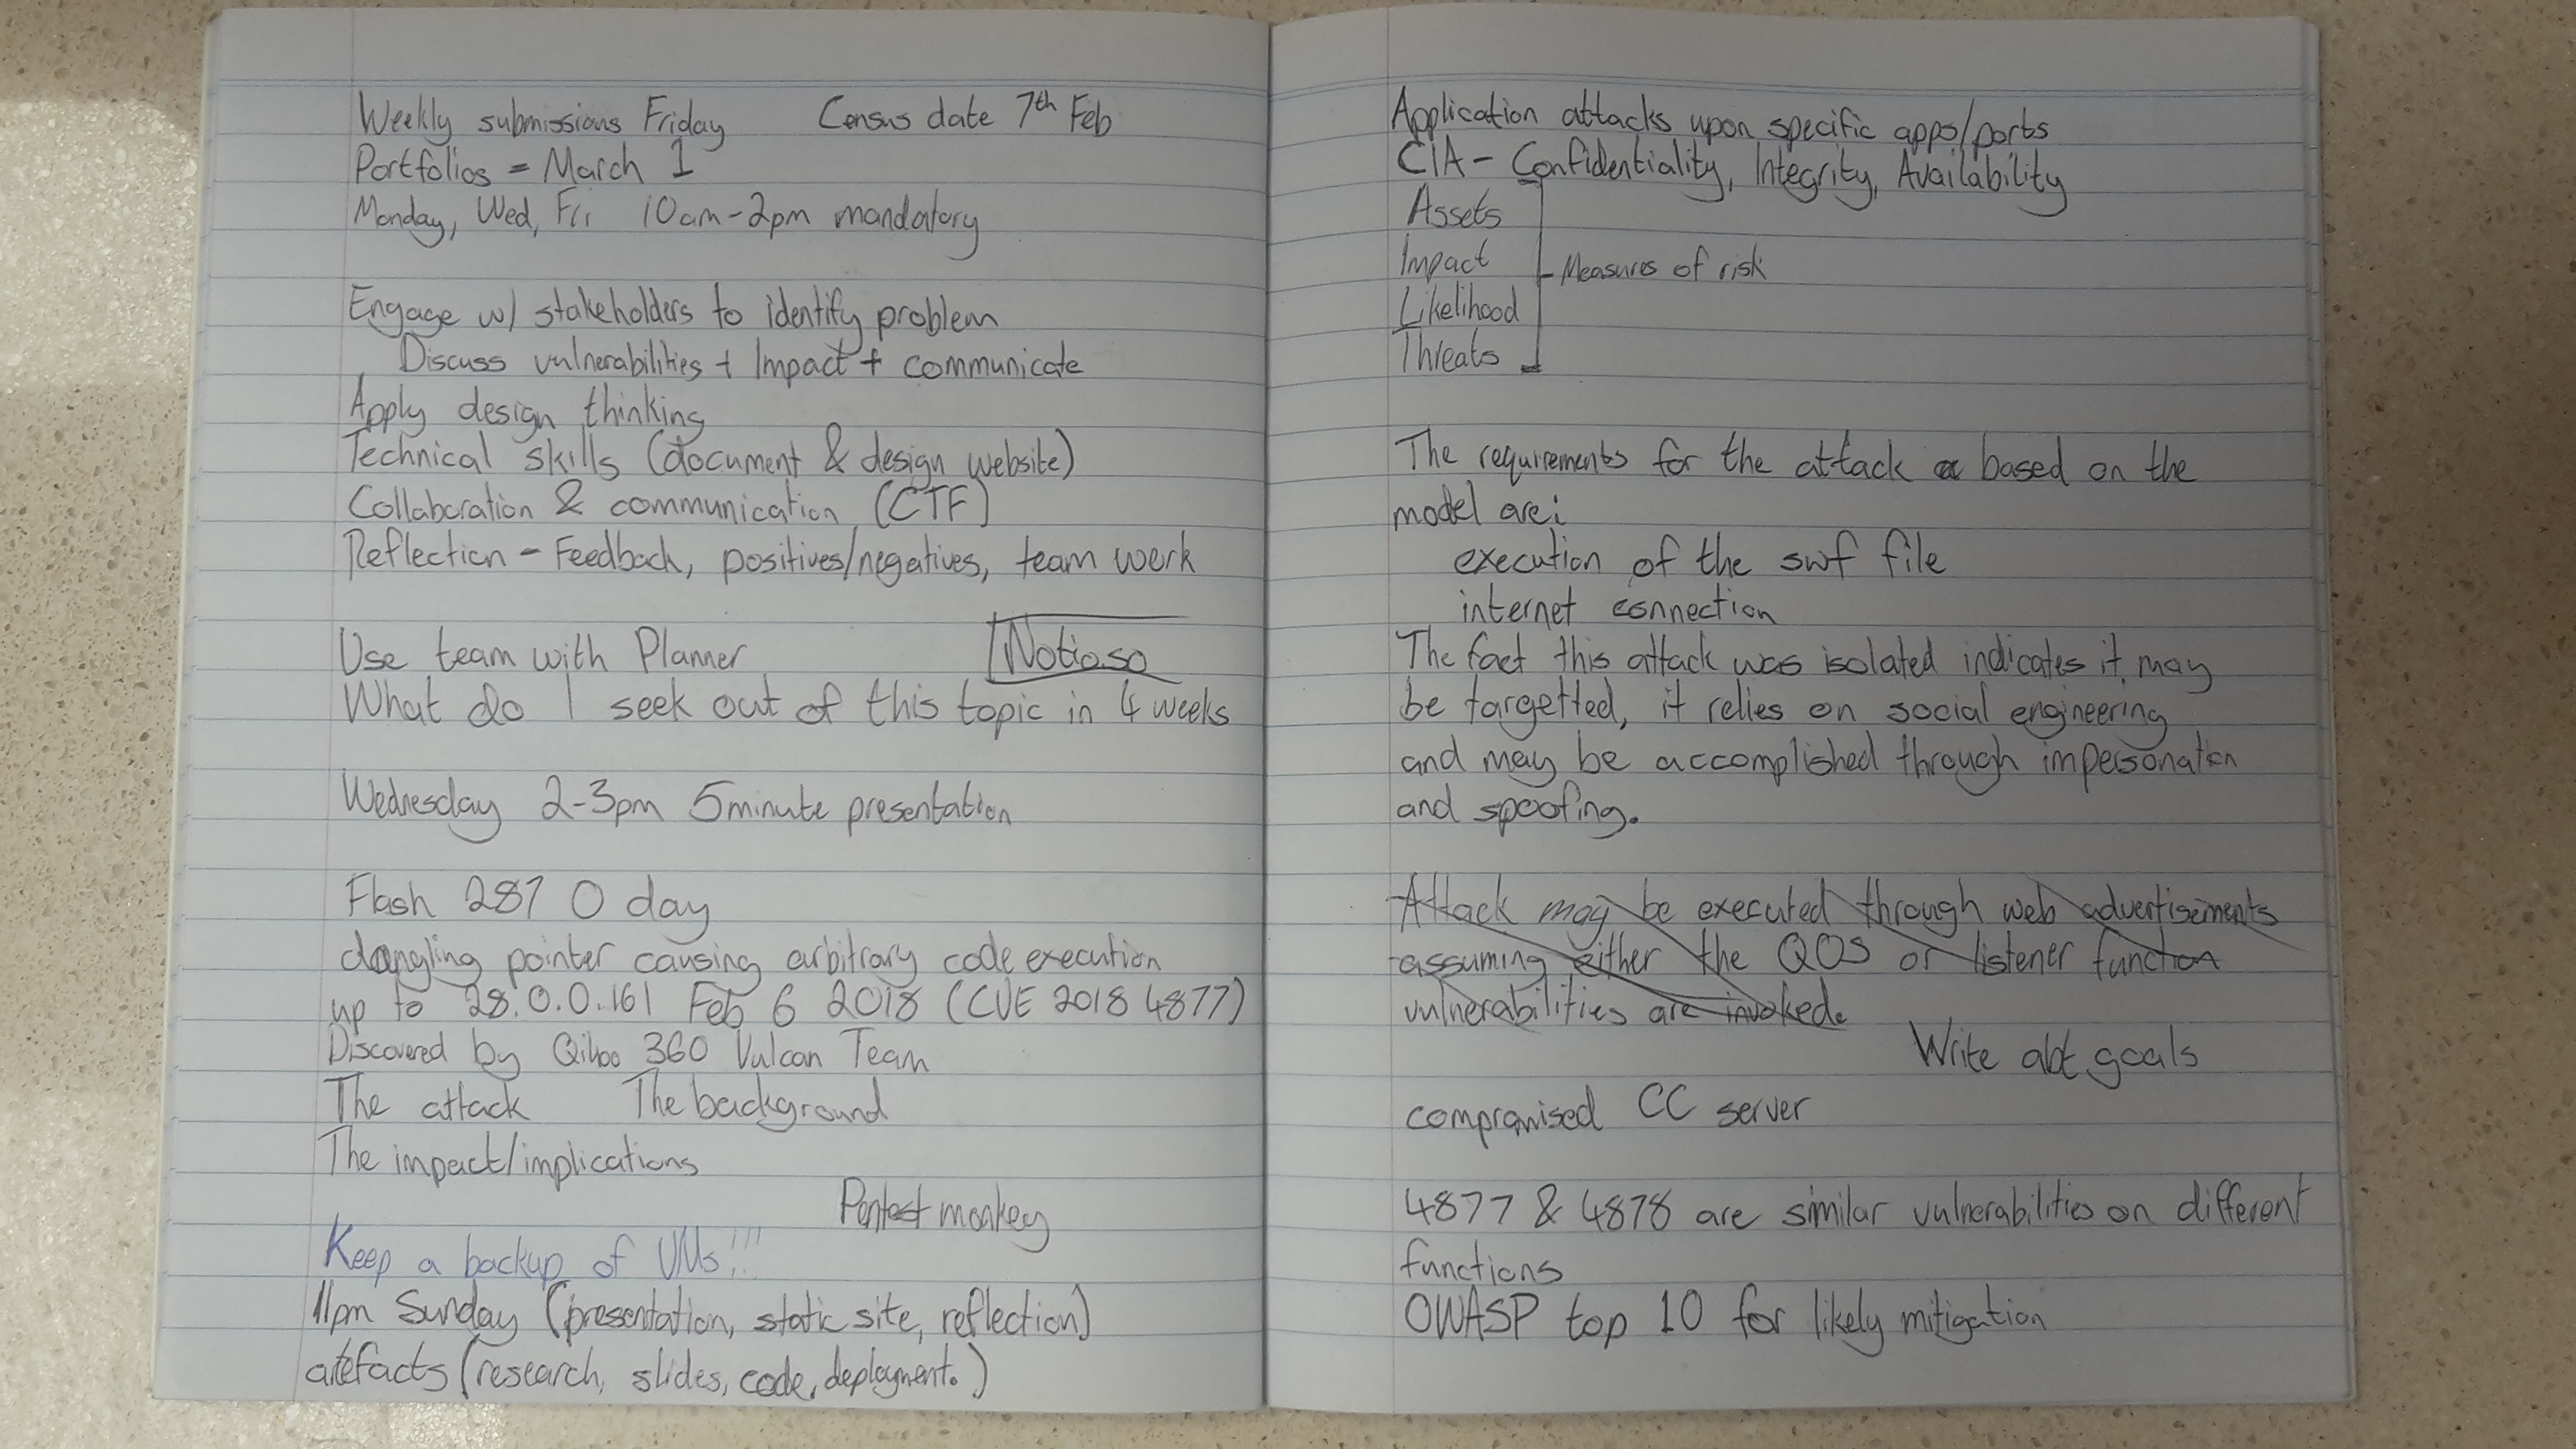 Weekly submissions Friday Census date 7th Feb
Portfolios = March 1
Monday, Wed, Fri 10am-2pm mandatory
Engage w/ stakeholders to identify problem
Discuss vulnerabilities + Impact + communicate
Apply design thinking
Technical skills (document & design website)
Collaboration & communication (CTF)
Reflection - Feedback, positives/negatives, team work
Use team with Planner
What do I seek out of this topic in 4 weeks
Wednesday 2-3pm 5minute presentation
Flash 287 0 day
dangling pointer causing arbitrary code execution
up to 28.0.0.161 Feb 6 2018 (CVE 2018 4877)
Discovered by Qihoo 360 Vulcan Team
The attack The background
The impact/implications
Pentest monkey
Keep a backup of VMs!!!
11pm Sunday (presentation, static site, reflection)
artefacts (research, slides, code, deployment.)
Application attacks upon specific apps/ports
CIA - Confidentiality, Integrity, Availability
Assets
Impact
Measures of risk
Likelihood
Threats
The requirements for the attack based on the
model are:
execution of the swf file
internet connection
The fact this attack was isolated indicates it may
be targetted, it relies on social engineering
and may be accomplished through impersonation
and spoofing.
Attack may be executed through web advertisements
assuming either the QOS or listener function
vulnerabilities are invoked.
Write abt goals
compromised CC server
4877 & 4878 are similar vulnerabilities on different
functions
OWASP top 10 for likely mitigation